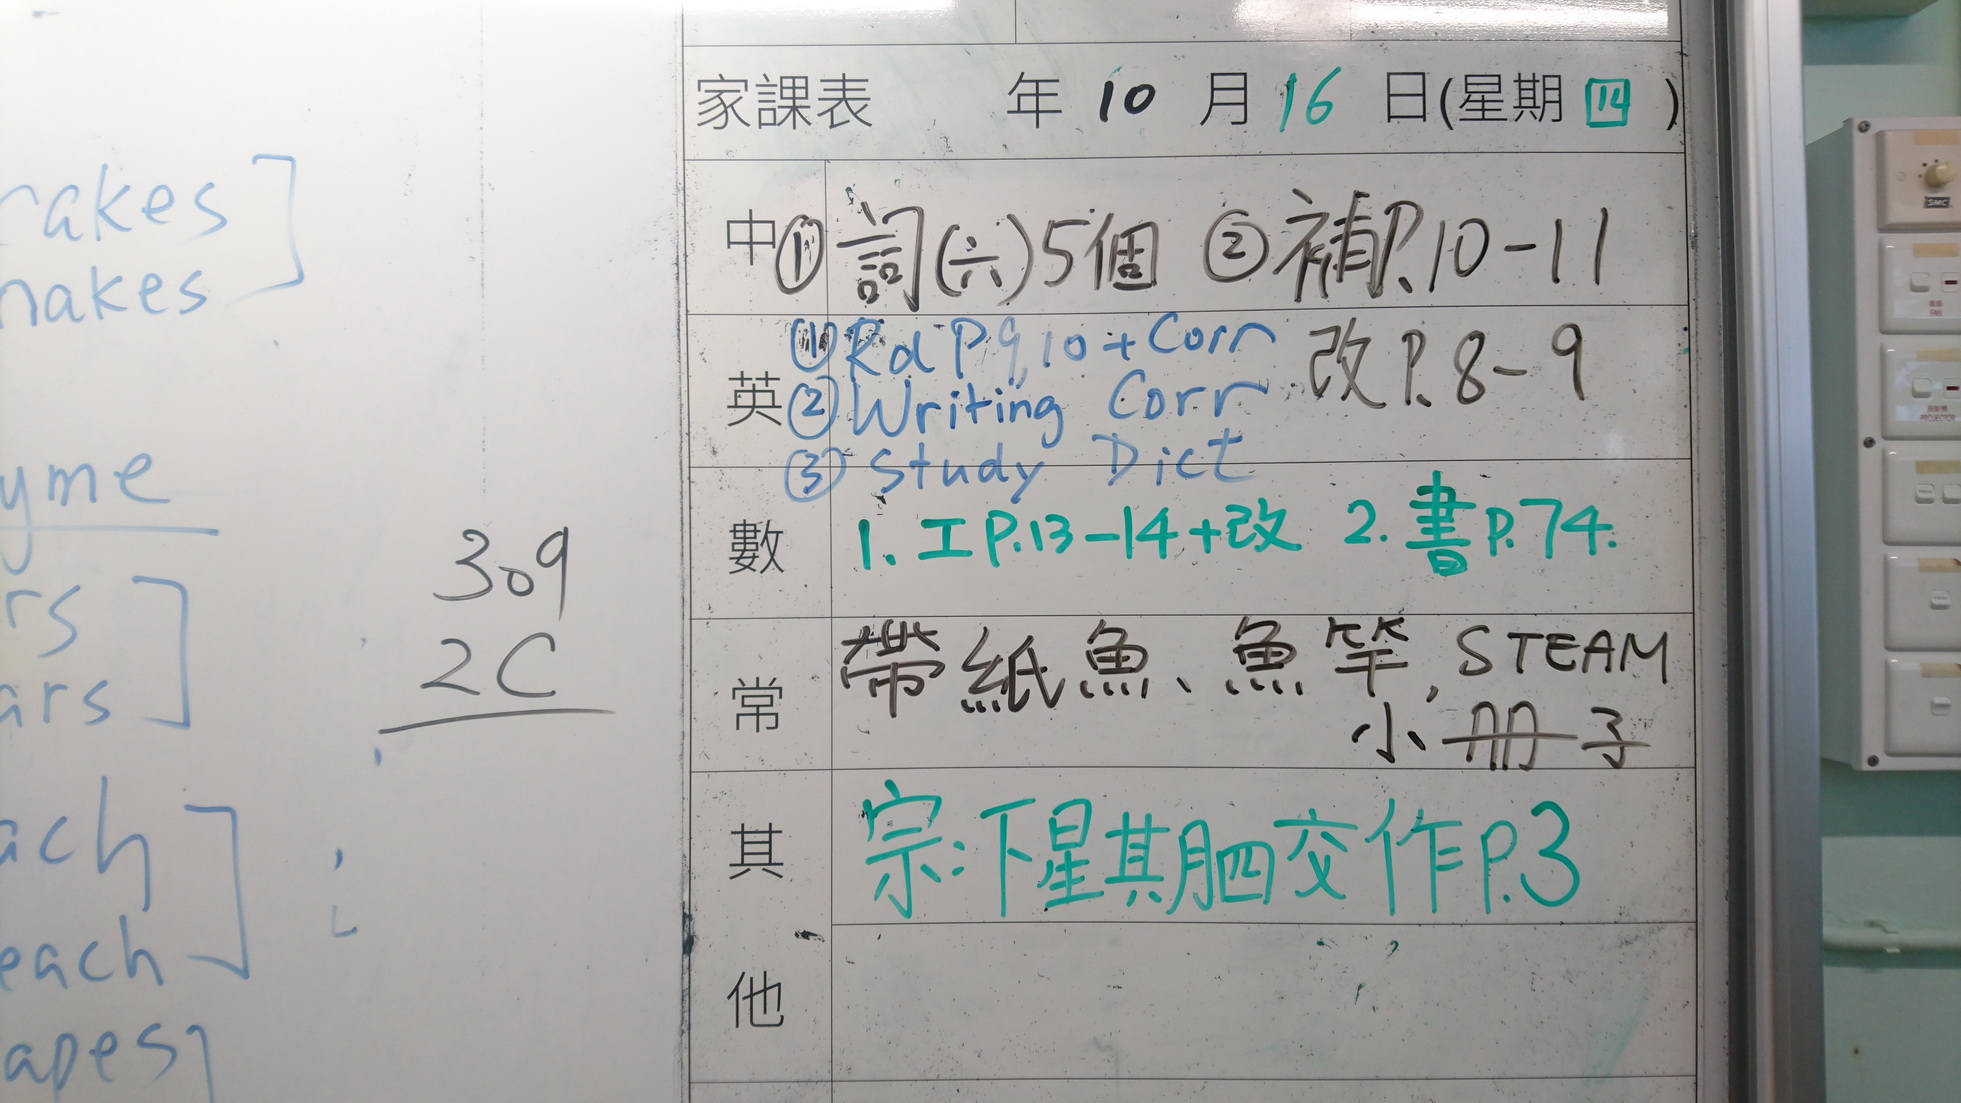 rakes
nakes
yme
rs
ars
ach
each
apes
309
2C
家課表 年 10 月 16 日(星期 四 )
中 ① 詞(六)5個 ② 補P.10-11
改P.8-9
英 ① Rd P9,10 + Corr
② Writing Corr
③ Study Dict
數 1. 工P.13-14+改 2. 書P.74.
常 帶紙魚、魚竿, STEAM
小冊子
其他 宗:下星其月四交作P.3
SMC
FAN
PROJECTOR